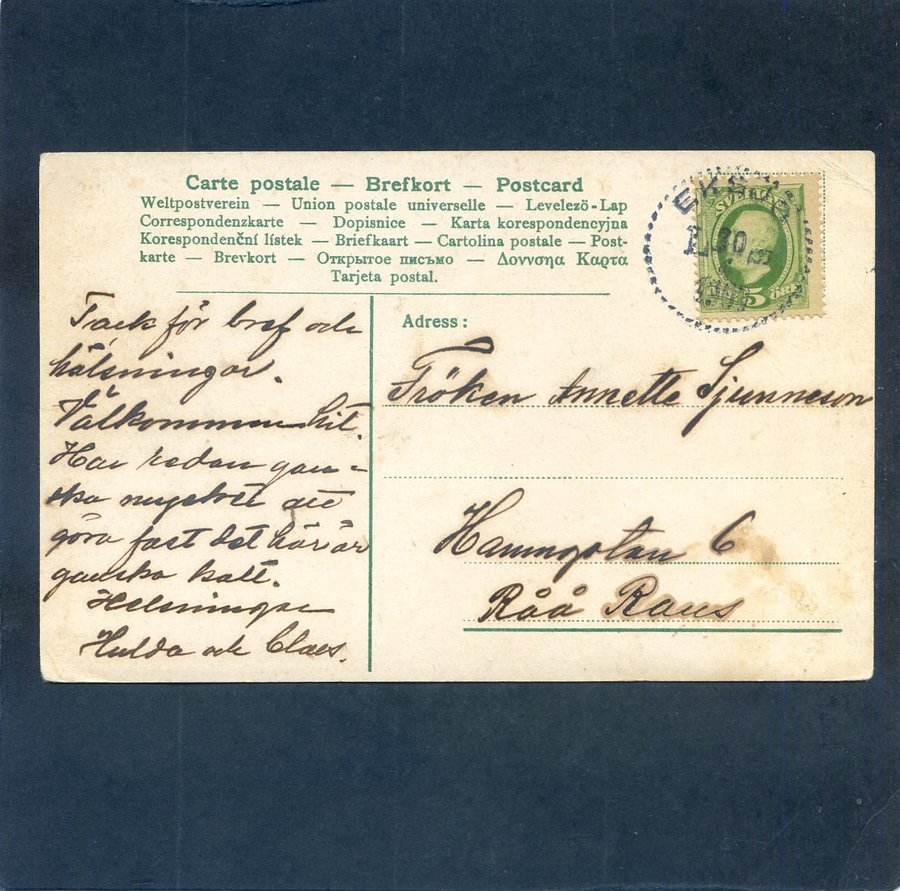 Carte postale — Brefkort — Postcard
Weltpostverein — Union postale universelle — Levelező-Lap
Correspondenzkarte — Dopisnice — Karta korespondencyjna
Korespondenční lístek — Briefkaart — Cartolina postale — Post-
karte — Brevkort — Открытое письмо — Δοννσηα Καρτα
Tarjeta postal.
Tack för bref och
hälsningar.
Välkommen hit.
Har redan gan-
ska mycket att
göra fast det här är
ganska kallt.
Helsningar
Hulda och Claes.
EKSJÖ
SVERIGE
5 ÖRE
Adress:
Fröken Annette Sjunneson
Hamngatan 6
Råå Raus